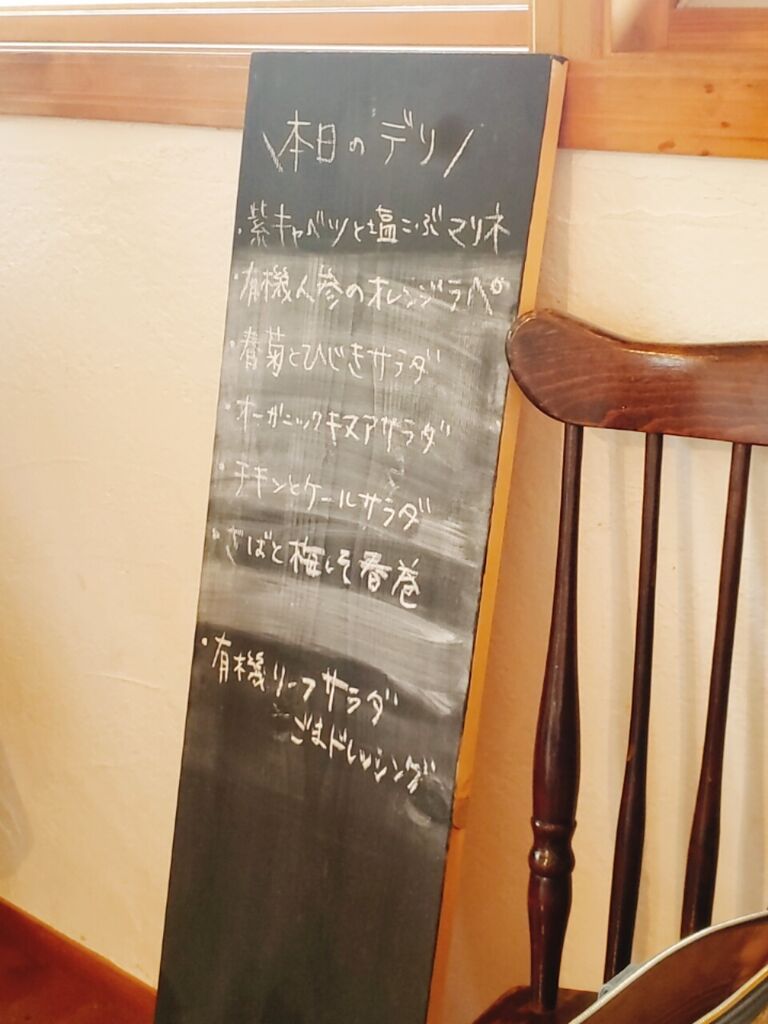 \本日のデリ/
・紫キャベツと塩こぶマリネ
・有機人参のオレンジラペ
・春菊とひじきサラダ
・オーガニックキヌアサラダ
・チキンとケールサラダ
・さばと梅しそ春巻
・有機リーフサラダ
ごまドレッシング